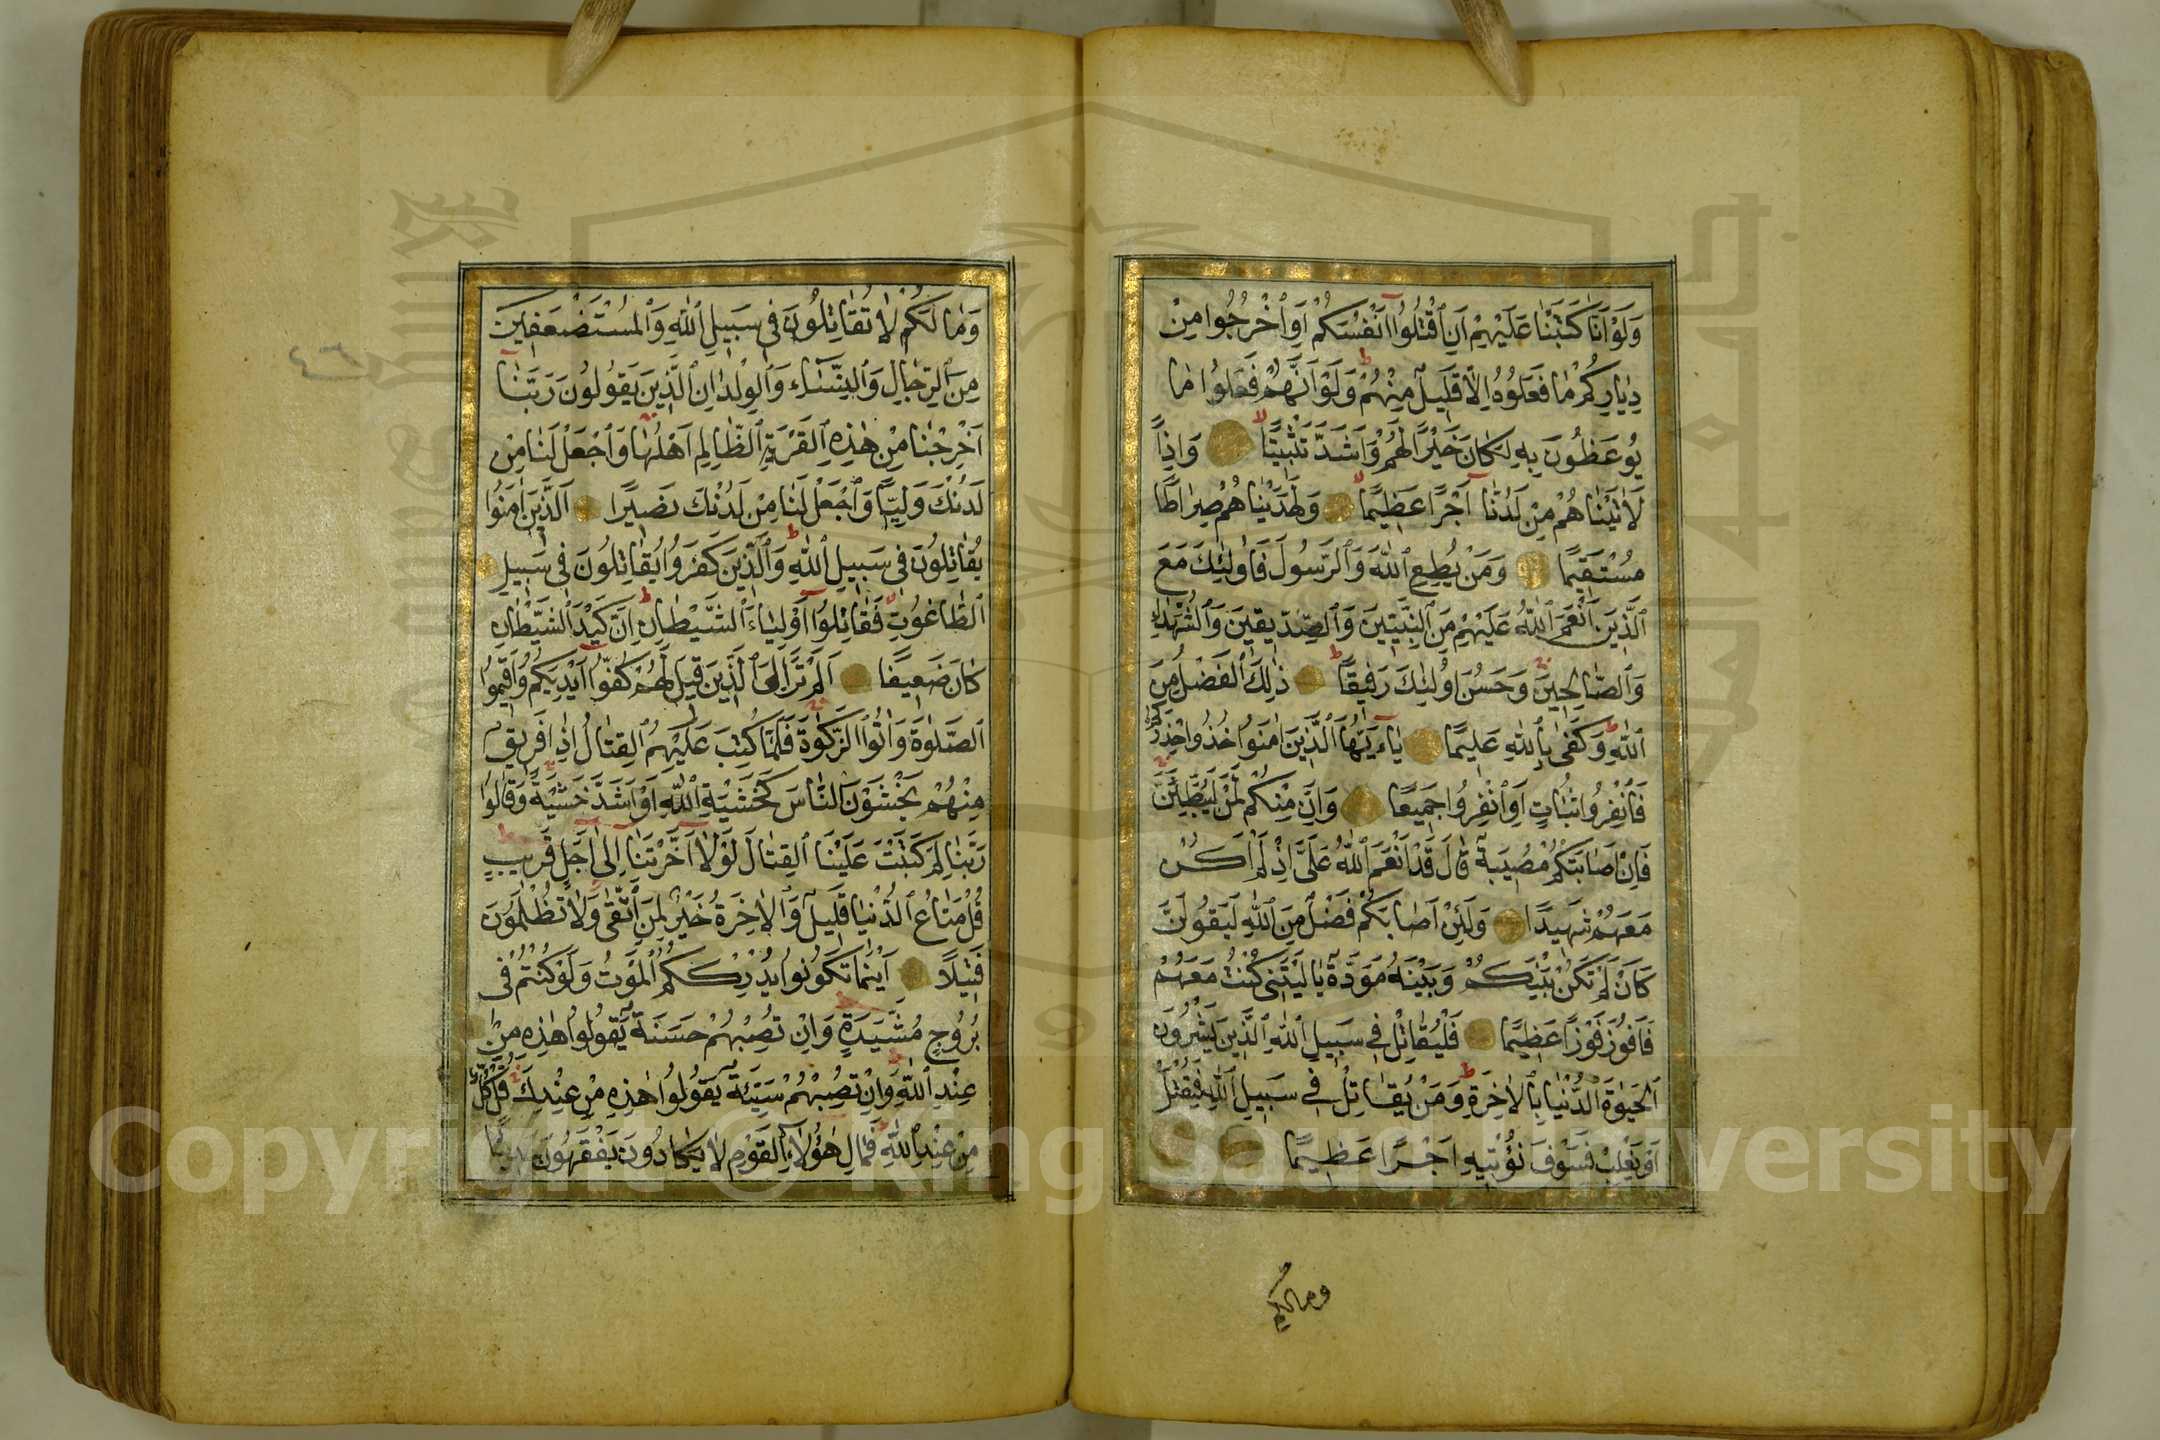 وَلَوْ اَنَّا كَتَبْنَا عَلَيْهِمْ اَنِ ٱقْتُلُوٓا اَنْفُسَكُمْ اَوِ ٱخْرُجُوا مِنْ
دِيَارِكُمْ مَا فَعَلُوهُ اِلَّا قَلِيلٌ مِنْهُمْ وَلَوْ اَنَّهُمْ فَعَلُوا مَا
يُوعَظُونَ بِهِ لَكَانَ خَيْرًا لَهُمْ وَاَشَدَّ تَثْبِيتًا وَاِذًا
لَاٰتَيْنَاهُمْ مِنْ لَدُنَّٓا اَجْرًا عَظِيمًا وَلَهَدَيْنَاهُمْ صِرَاطًا
مُسْتَقِيمًا وَمَنْ يُطِعِ ٱللّٰهَ وَٱلرَّسُولَ فَاُولٰئِكَ مَعَ
ٱلَّذِينَ اَنْعَمَ ٱللّٰهُ عَلَيْهِمْ مِنَ ٱلنَّبِيّٖنَ وَٱلصِّدّيقِينَ وَٱلشُّهَدَاءِ
وَٱلصَّالِحِينَ وَحَسُنَ اُولٰئِكَ رَفِيقًا ذٰلِكَ ٱلْفَضْلُ مِنَ
ٱللّٰهِ وَكَفٰى بِٱللّٰهِ عَلِيمًا يَٓا اَيُّهَا ٱلَّذِينَ اٰمَنُوا خُذُوا حِذْرَكُمْ
فَٱنْفِرُوا ثُبَاتٍ اَوِ ٱنْفِرُوا جَمِيعًا وَاِنَّ مِنْكُمْ لَمَنْ لَيُبَطِّئَنَّ
فَاِنْ اَصَابَتْكُمْ مُصِيبَةٌ قَالَ قَدْ اَنْعَمَ ٱللّٰهُ عَلَيَّ اِذْ لَمْ اَكُنْ
مَعَهُمْ شَهِيدًا وَلَئِنْ اَصَابَكُمْ فَضْلٌ مِنَ ٱللّٰهِ لَيَقُولَنَّ
كَاَنْ لَمْ تَكُنْ بَيْنَكُمْ وَبَيْنَهُ مَوَدَّةٌ يَا لَيْتَنِي كُنْتُ مَعَهُمْ
فَاَفُوزَ فَوْزًا عَظِيمًا فَلْيُقَاتِلْ فِي سَبِيلِ ٱللّٰهِ ٱلَّذِينَ يَشْرُونَ
ٱلْحَيٰوةَ ٱلدُّنْيَا بِٱلْاٰخِرَةِ وَمَنْ يُقَاتِلْ فِي سَبِيلِ ٱللّٰهِ فَيُقْتَلْ
اَوْ يَغْلِبْ فَسَوْفَ نُؤْتِيهِ اَجْرًا عَظِيمًا
ومالكم
وَمَا لَكُمْ لَا تُقَاتِلُونَ فِي سَبِيلِ ٱللّٰهِ وَٱلْمُسْتَضْعَفِينَ
مِنَ ٱلرِّجَالِ وَٱلنِّسَٓاءِ وَٱلْوِلْدَانِ ٱلَّذِينَ يَقُولُونَ رَبَّنَٓا
اَخْرِجْنَا مِنْ هٰذِهِ ٱلْقَرْيَةِ ٱلظَّالِمِ اَهْلُهَا وَٱجْعَلْ لَنَا مِنْ
لَدُنْكَ وَلِيًّا وَٱجْعَلْ لَنَا مِنْ لَدُنْكَ نَصِيرًا اَلَّذِينَ اٰمَنُوا
يُقَاتِلُونَ فِي سَبِيلِ ٱللّٰهِ وَٱلَّذِينَ كَفَرُوا يُقَاتِلُونَ فِي سَبِيلِ
ٱلطَّاغُوتِ فَقَاتِلُوٓا اَوْلِيَاءَ ٱلشَّيْطَانِ اِنَّ كَيْدَ ٱلشَّيْطَانِ
كَانَ ضَعِيفًا اَلَمْ تَرَ اِلَى ٱلَّذِينَ قِيلَ لَهُمْ كُفُّوٓا اَيْدِيَكُمْ وَاَقِيمُوا
ٱلصَّلٰوةَ وَاٰتُوا ٱلزَّكٰوةَ فَلَمَّا كُتِبَ عَلَيْهِمُ ٱلْقِتَالُ اِذَا فَرِيقٌ
مِنْهُمْ يَخْشَوْنَ ٱلنَّاسَ كَخَشْيَةِ ٱللّٰهِ اَوْ اَشَدَّ خَشْيَةً وَقَالُوا
رَبَّنَا لِمَ كَتَبْتَ عَلَيْنَا ٱلْقِتَالَ لَوْلَٓا اَخَّرْتَنَٓا اِلٰٓى اَجَلٍ قَرِيبٍ
قُلْ مَتَاعُ ٱلدُّنْيَا قَلِيلٌ وَٱلْاٰخِرَةُ خَيْرٌ لِمَنِ ٱتَّقٰى وَلَا تُظْلَمُونَ
فَتِيلًا اَيْنَمَا تَكُونُوا يُدْرِكْكُمُ ٱلْمَوْتُ وَلَوْ كُنْتُمْ فِي
بُرُوجٍ مُشَيَّدَةٍ وَاِنْ تُصِبْهُمْ حَسَنَةٌ يَقُولُوا هٰذِهِ مِنْ
عِنْدِ ٱللّٰهِ وَاِنْ تُصِبْهُمْ سَيِّئَةٌ يَقُولُوا هٰذِهِ مِنْ عِنْدِكَ قُلْ كُلٌّ
مِنْ عِنْدِ ٱللّٰهِ فَمَالِ هٰؤُلَٓاءِ ٱلْقَوْمِ لَا يَكَادُونَ يَفْقَهُونَ حَدِيثًا
Copyright © King Saud University